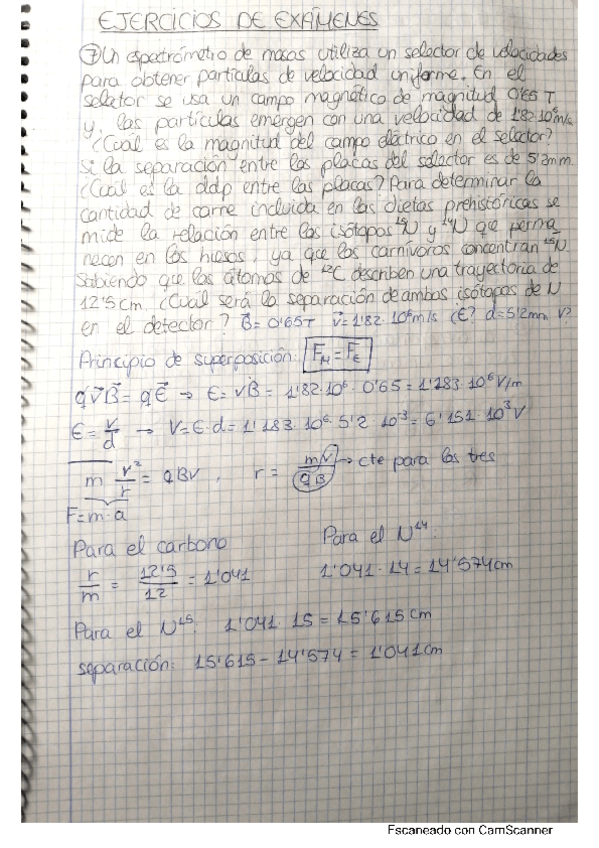 EJERCICIOS DE EXÁMENES
⑦ Un espectrómetro de masas utiliza un selector de velocidades
para obtener partículas de velocidad uniforme. En el
selector se usa un campo magnético de magnitud 0'65 T
y, las partículas emergen con una velocidad de 1'82·10⁶m/s
¿Cuál es la magnitud del campo eléctrico en el selector?
si la separación entre las placas del selector es de 5'2mm.
¿Cuál es la ddp entre las placas? Para determinar la
cantidad de carne incluida en las dietas prehistóricas se
mide la relación entre los isótopos ¹⁵N y ¹⁴N que perma
necen en los huesos, ya que los carnívoros concentran ¹⁵N
Sabiendo que los átomos de ¹²C describen una trayectoria de
12'5 cm ¿Cuál será la separación de ambos isótopos de N
en el detector? B⃗ = 0'65T v⃗ = 1'82·10⁶m/s ¿E? d=5'2mm V?
Principio de superposición: F_M = F_E
qv⃗B⃗ = qE⃗ → E = vB = 1'82·10⁶ · 0'65 = 1'183·10⁶ V/m
E = V/d → V = E·d = 1'183·10⁶ · 5'2·10⁻³ = 6'151·10³ V
m v²/r = qBV, r = mV/qB → cte para los tres
F = m·a
Para el carbono Para el N¹⁴:
r/m = 12'5/12 = 1'041 1'041·14 = 14'574cm
Para el N¹⁵: 1'041·15 = 15'615 cm
separación: 15'615 - 14'574 = 1'041cm
Escaneado con CamScanner